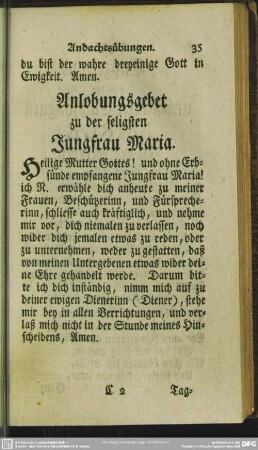 Andachtsübungen. 35
du bist der wahre dreyeinige Gott in
Ewigkeit. Amen.
Anlobungsgebet
zu der seligsten
Jungfrau Maria.
Heilige Mutter Gottes! und ohne Erb-
sünde empfangene Jungfrau Maria!
ich N. erwähle dich anheute zu meiner
Frauen, Beschützerinn, und Fürspreche-
rinn, schliesse auch kräftiglich, und nehme
mir vor, dich niemalen zu verlassen, noch
wider dich jemalen etwas zu reden, oder
zu unternehmen, weder zu gestatten, daß
von meinen Untergebenen etwas wider dei-
ne Ehre gehandelt werde. Darum bit-
te ich dich inständig, nimm mich auf zu
deiner ewigen Dienerinn (Diener), stehe
mir bey in allen Verrichtungen, und ver-
laß mich nicht in der Stunde meines Hin-
scheidens, Amen.
C 2 Tag-